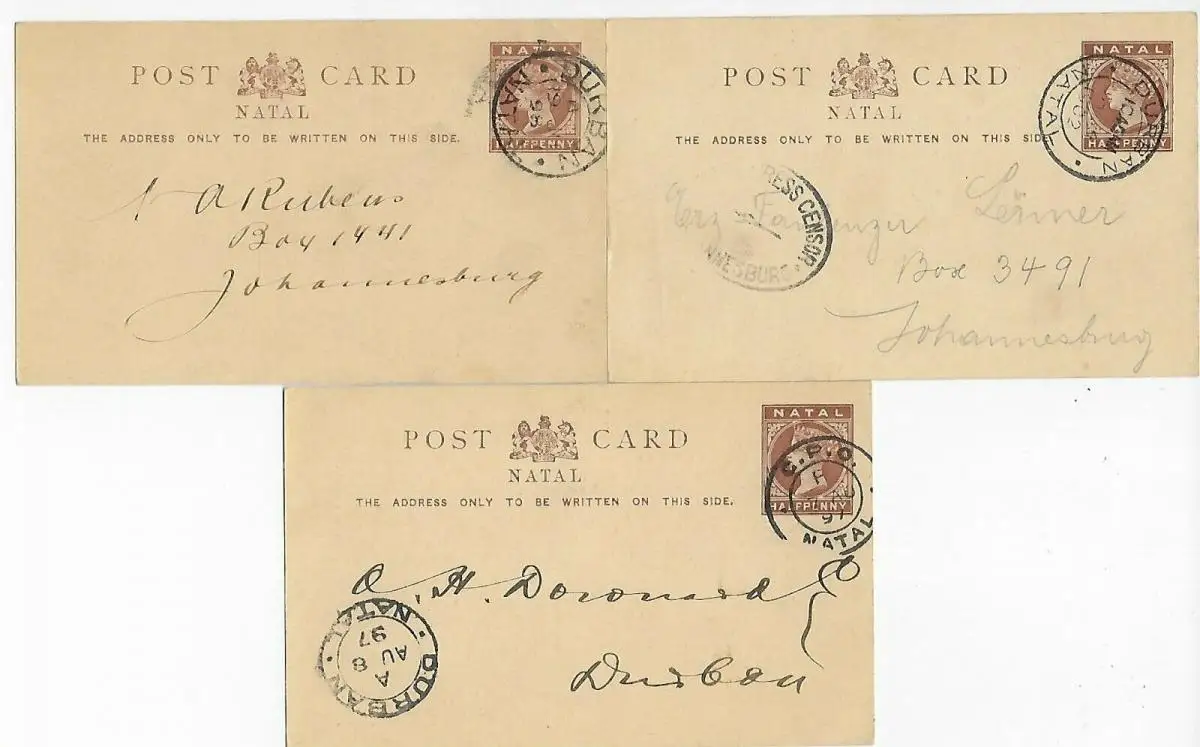 POST CARD
NATAL
THE ADDRESS ONLY TO BE WRITTEN ON THIS SIDE.
NATAL
HALFPENNY
DURBAN NATAL
A Rubens
Box 1441
Johannesburg
POST CARD
NATAL
THE ADDRESS ONLY TO BE WRITTEN ON THIS SIDE.
NATAL
HALFPENNY
DURBAN NATAL
PRESS CENSOR
NNESBURG
Lerner
Box 3491
Johannesburg
POST CARD
NATAL
THE ADDRESS ONLY TO BE WRITTEN ON THIS SIDE.
NATAL
HALFPENNY
G.P.O.
97
NATAL
H.
Durban
DURBAN NATAL
A
AU 8
97